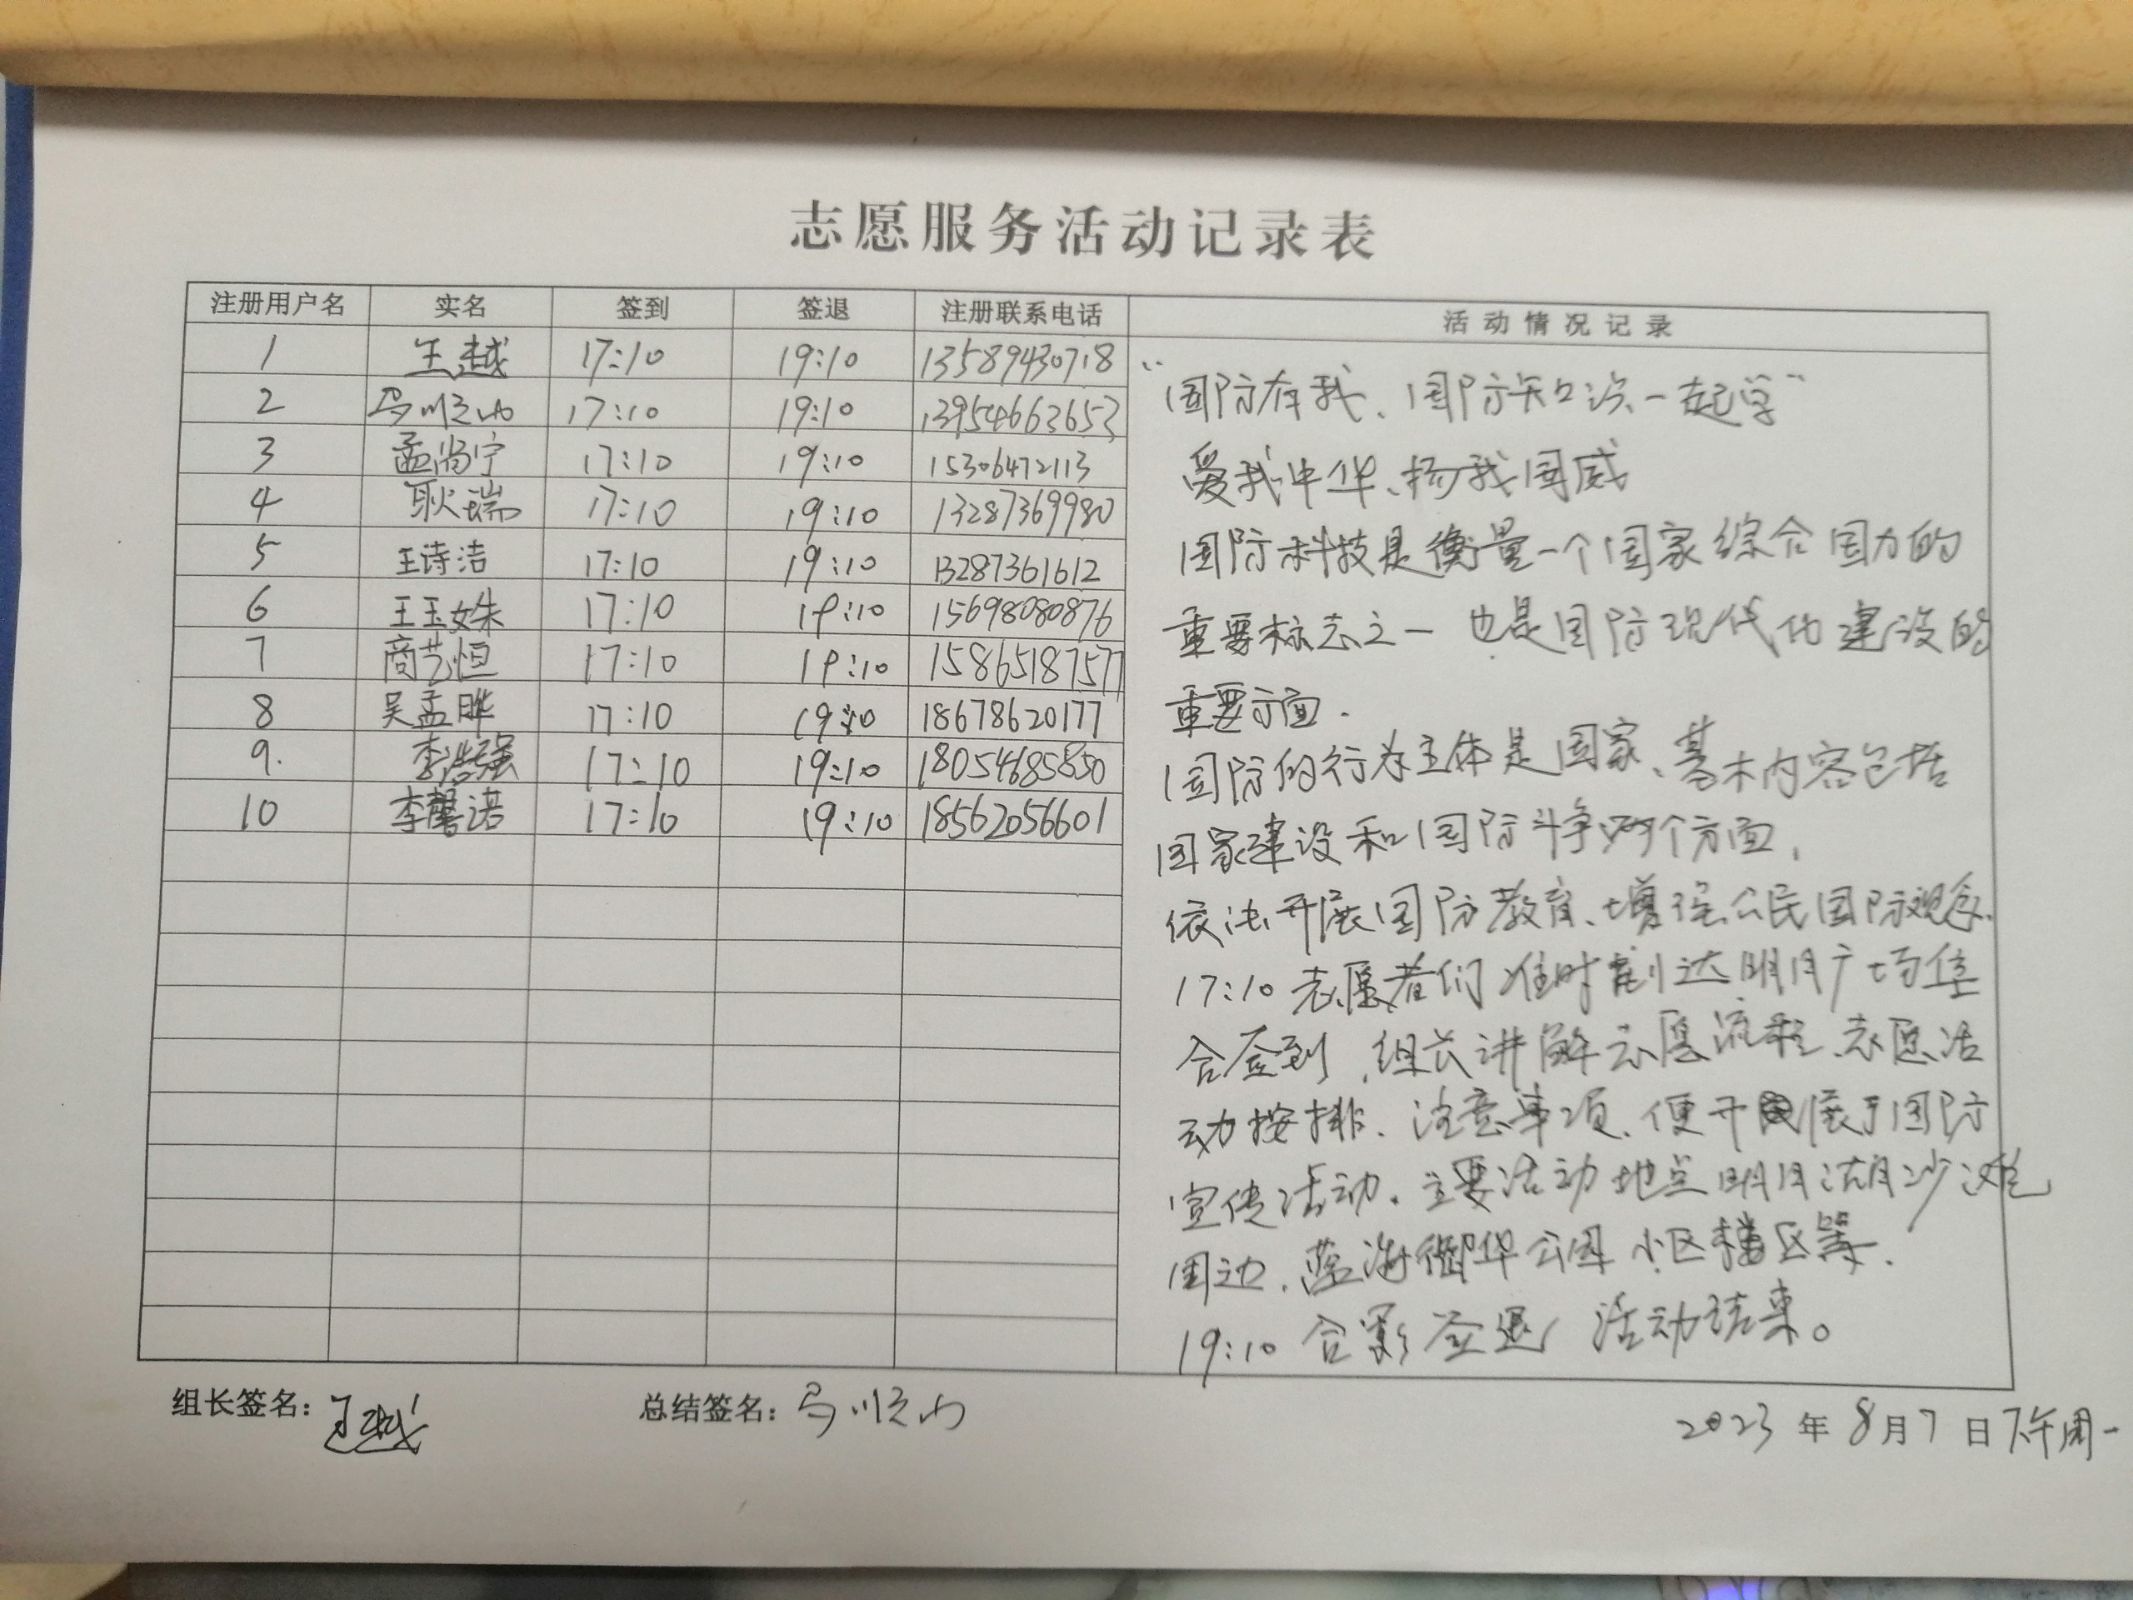 志愿服务活动记录表
注册用户名 实名 签到 签退 注册联系电话 活动情况记录
1 王越 17:10 19:10 13589430718
2 马顺山 17:10 19:10 13954663653
3 孟尚宁 17:10 19:10 15306472113
4 耿瑞 17:10 19:10 13287369980
5 王诗洁 17:10 19:10 13287361612
6 王玉姝 17:10 19:10 15698080876
7 商艺恒 17:10 19:10 15865187577
8 吴孟晔 17:10 19:10 18678620177
9. 李浩强 17:10 19:10 18054685850
10 李馨诺 17:10 19:10 18562056601
“国防有我、国防知识一起学”
爱我中华、扬我国威
国防科技是衡量一个国家综合国力的
重要标志之一 也是国防现代化建设的
重要方面.
国防的行为主体是国家、基本内容包括
国家建设和国防斗争两个方面,
依法开展国防教育、增强公民国防观念.
17:10 志愿者们准时到达明月广场集
合签到,组长讲解志愿流程、志愿活
动按排、注意事项、便开展了国防
宣传活动.主要活动地点明月湖沙滩
周边、蓝海御华公园 小区楼区等.
19:10 合影签退 活动结束。
组长签名:王越 总结签名:马顺山 2023年8月7日下午周一